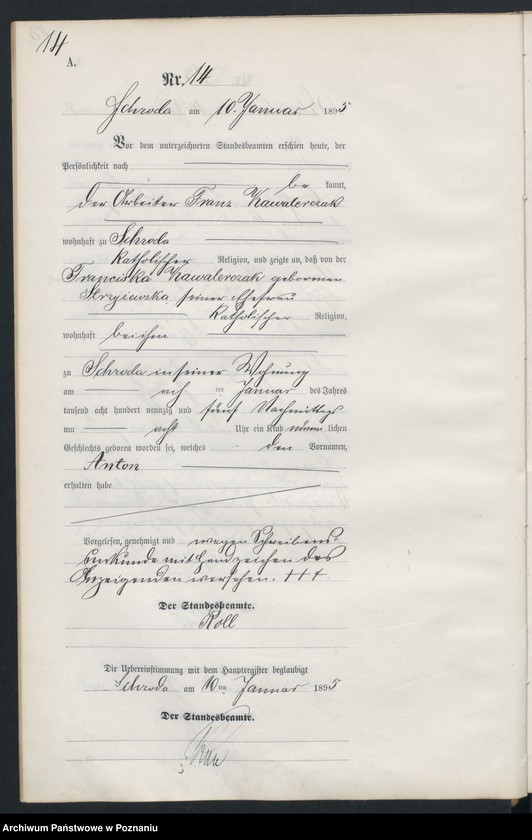 14
A.
Nr. 14
Schroda am 10. Januar 1895
Vor dem unterzeichneten Standesbeamten erschien heute, der
Persönlichkeit nach
be kannt,
der Arbeiter Franz Kawalerczak
wohnhaft zu Schroda
katholischer Religion, und zeigte an, daß von der
Franciska Kawalerczak geborenen
seiner Ehefrau
katholischer Religion,
wohnhaft bei ihm
zu Schroda in seiner Wohnung
am acht ten Januar des Jahres
tausend acht hundert neunzig und fünf Nachmittags
um acht Uhr ein Kind männlichen
Geschlechts geboren worden sei, welches den Vornamen,
Anton
erhalten habe
Vorgelesen, genehmigt und wegen Schreibens-
unkunde mit Handzeichen des
Anzeigenden versehen. +++
Der Standesbeamte.
Roll
Die Uebereinstimmung mit dem Hauptregister beglaubigt
Schroda am 10ten Januar 1895
Der Standesbeamte.
Archiwum Państwowe w Poznaniu